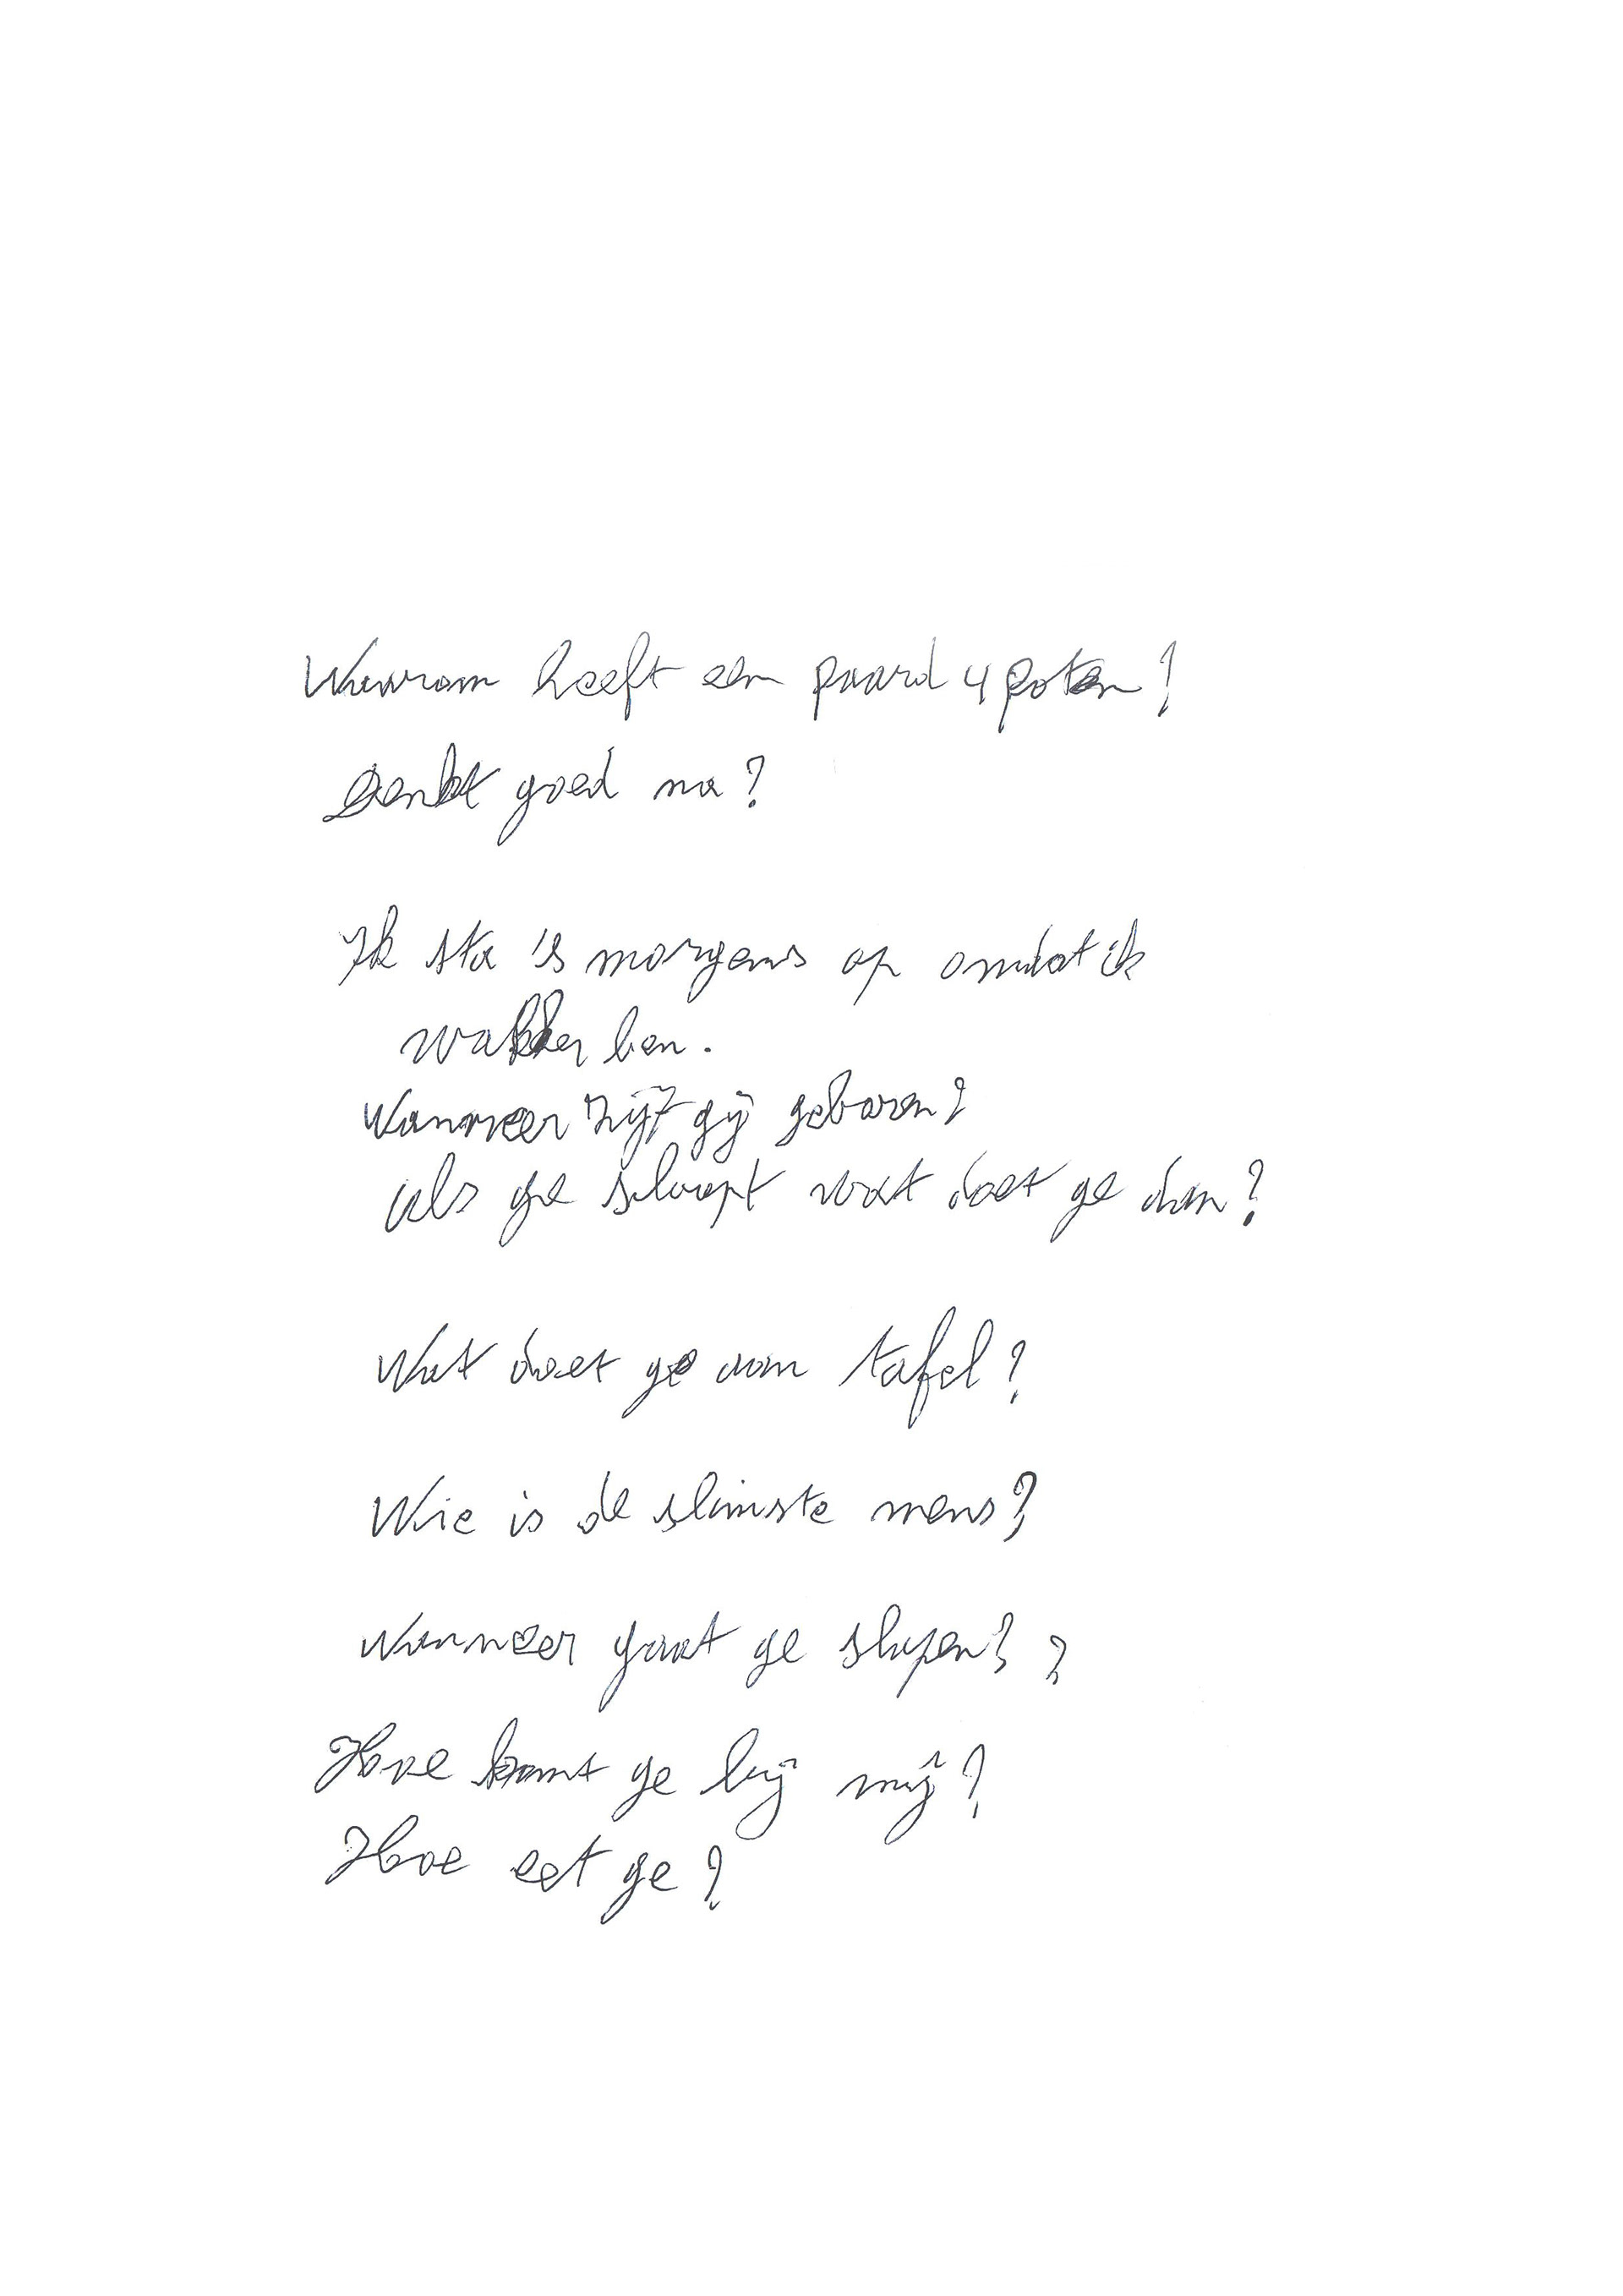 Waarom heeft een paard 4 poten?
Denkt goed na?
Ik sta 's morgens op omdat ik
wakker ben.
Wanneer zijt gij geboren?
Als ge slaapt wat doet ge dan?
Wat doet ge aan tafel?
Wie is de slimste mens?
Wanneer gaat ge slapen? ?
Hoe komt ge bij mij?
Hoe eet ge?